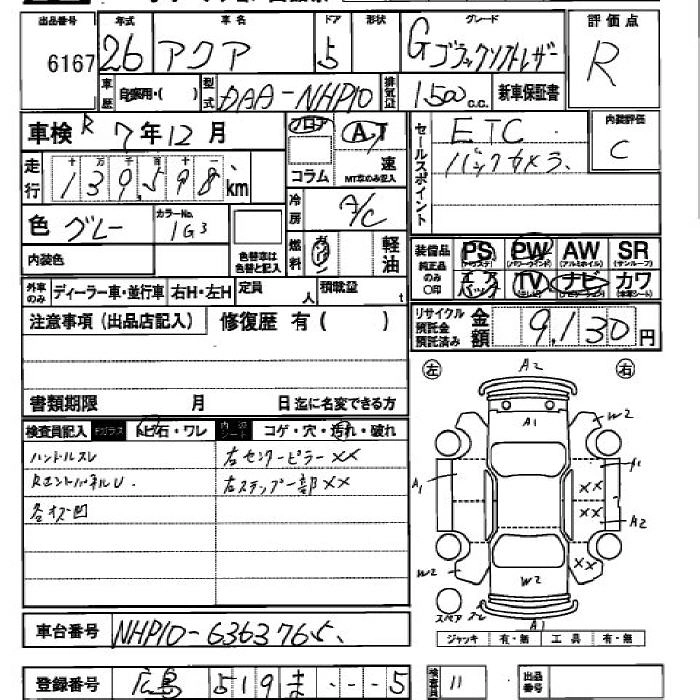 出品番号 年式 車名 ドア 形状 グレード 評価点
6167 26 アクア 5 Gブラックソフトレザー R
車歴 自家用・( ) 型式 DAA-NHP10 排気量 1500 c.c. 新車保証書
車検 R 7年12月 フロア AT セールスポイント ETC 内装評価
バックカメラ. C
走行 十 万 千 百 十 一
139,598 km コラム 速 MT車のみ記入
色 グレー カラーNo. 1G3 冷房 A/C
内装色 色替車は色替と記入 燃料 ガソリン 軽油
装備品 純正品のみ○印 PS (パワステ) PW (パワーウインド) AW (アルミホイル) SR (サンルーフ)
エアバック TV (テレビ) ナビ (ナビゲーション) カワ (本革シート)
外車のみ ディーラー車・並行車 右H・左H 定員 人 積載量 t
リサイクル預託金預託済み 金額 9,130円
注意事項(出品店記入) 修復歴 有( )
書類期限 月 日迄に名変できる方
検査員記入 Fガラス トビ石・ワレ 内張シート コゲ・穴・汚れ・破れ
ハンドルスレ 右センターピラーXX
RエンドパネルU. 右ステップ部XX
各オス凹
左 A2 右
A1 W2
A1 A1
XX
XX A2
XX
W2 W2
スペア スレ A1
ジャッキ 有・無 工具 有・無
車台番号 NHP10-6363765.
登録番号 広島 519 ま ・--5 検査員 11 出品番号